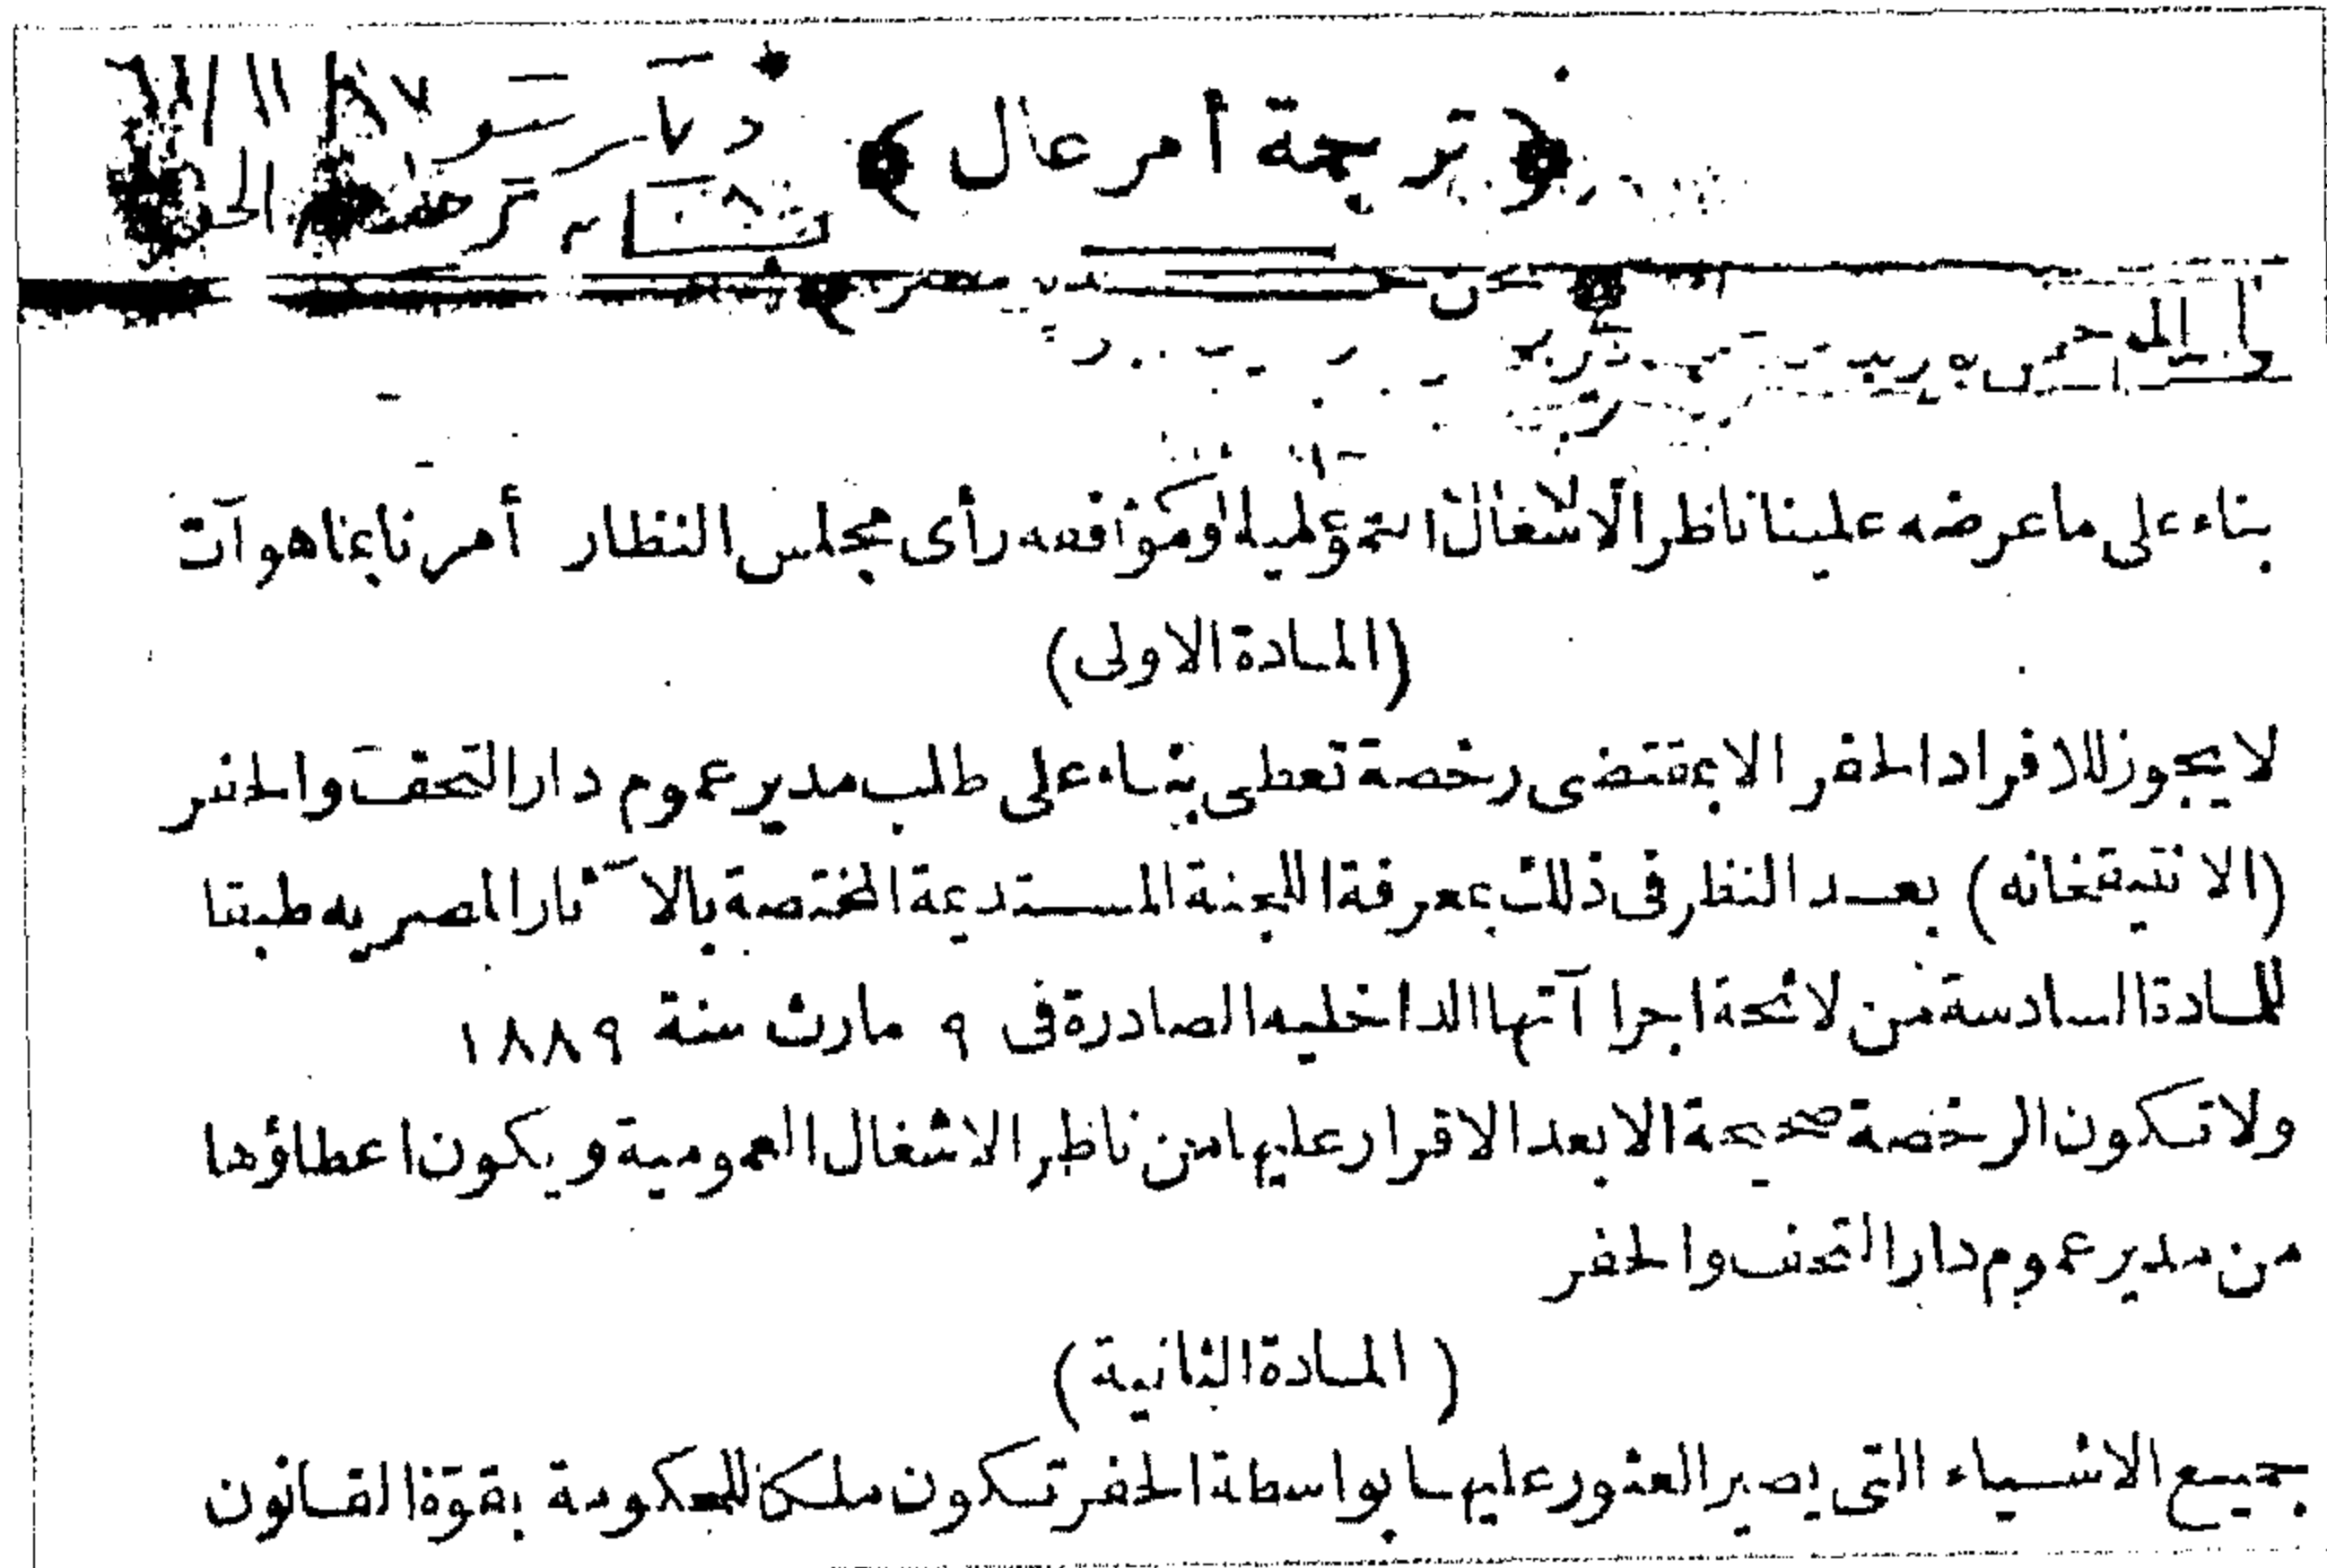 ﴿ ترجمة أمر عال ﴾
بناء على ما عرضه علينا ناظر الاشغال العموميه وموافقه رأى مجلس النظار أمرنا بما هو آت
(المادة الاولى)
لا يجوز للافراد الحفر الا بمقتضى رخصة تعطى بناء على طلب مدير عموم دار التحف والحفر
(الانتيقخانه) بعد النظر فى ذلك بمعرفة اللجنة المستديمة المختصة بالآثار المصريه طبقا
للمادة السادسة من لائحة اجراآتها الداخليه الصادرة فى ٩ مارث سنة ١٨٨٩
ولا تكون الرخصة صحيحة الا بعد الاقرار عليها من ناظر الاشغال العمومية ويكون اعطاؤها
من مدير عموم دار التحف والحفر
( المادة الثانية )
جميع الاشياء التى يصير العثور عليها بواسطة الحفر تكون ملكا للحكومة بقوة القانون